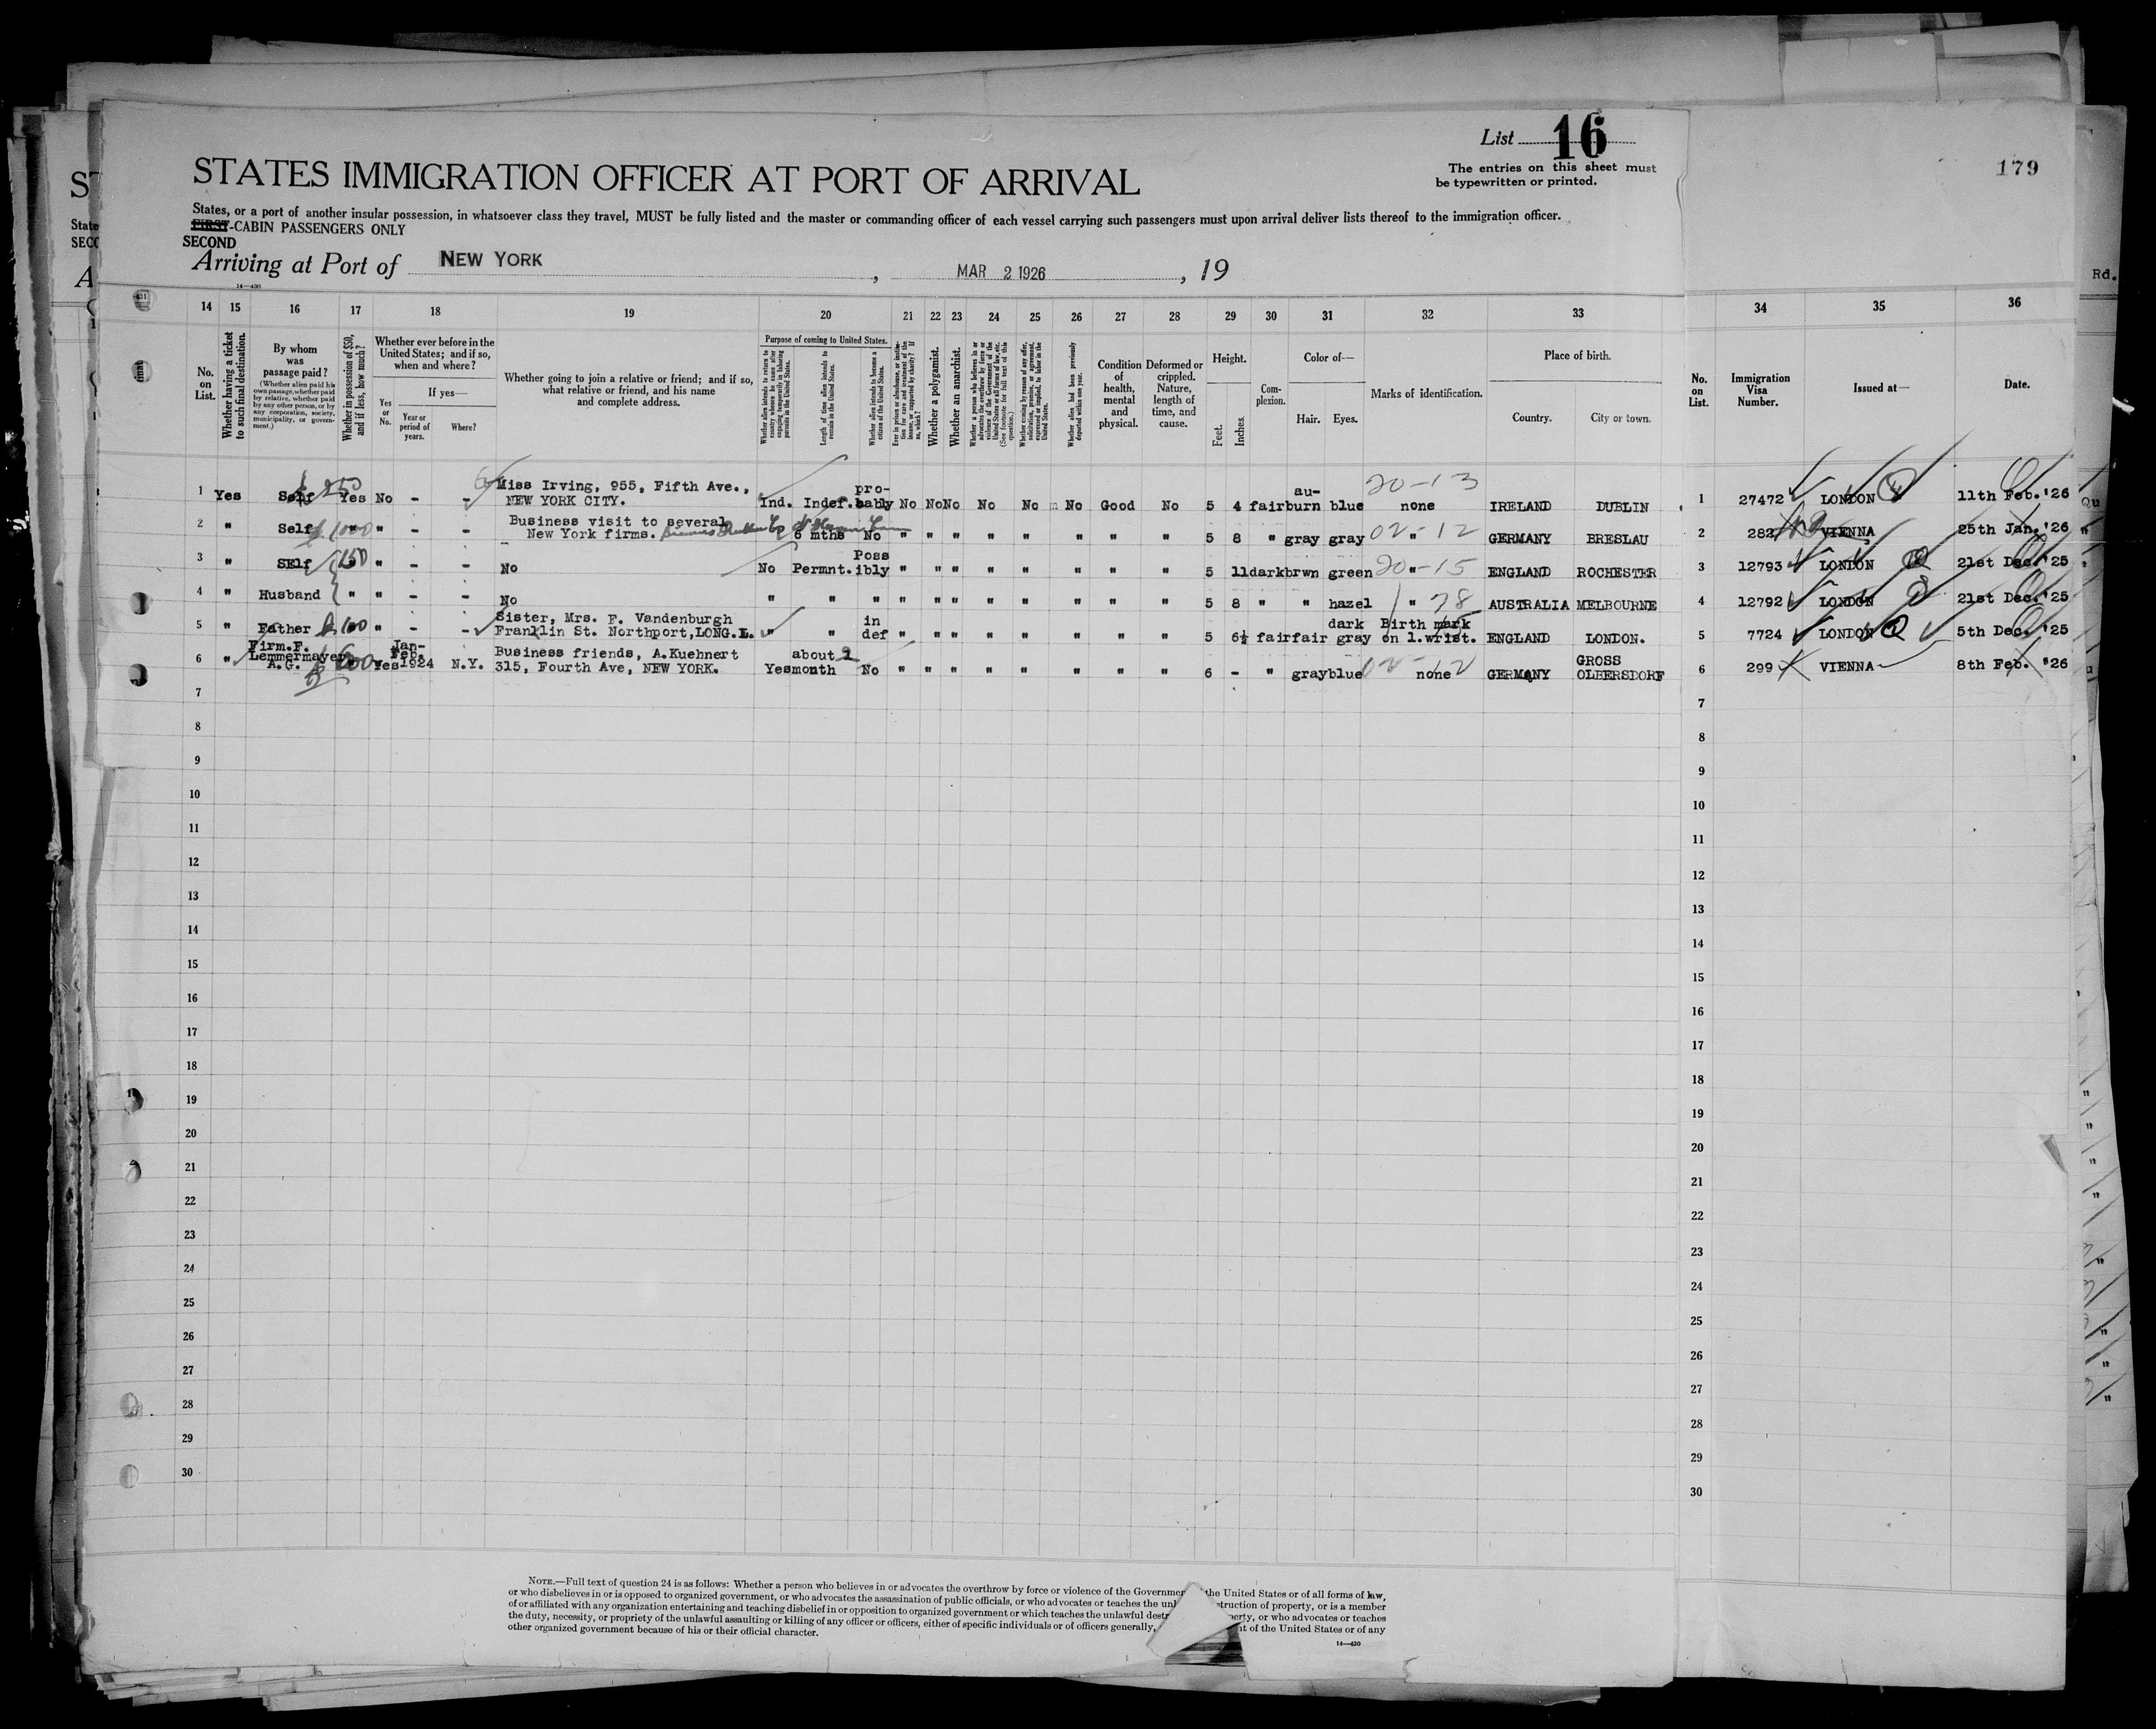 List 16
The entries on this sheet must
be typewritten or printed.
179
STATES IMMIGRATION OFFICER AT PORT OF ARRIVAL
States, or a port of another insular possession, in whatsoever class they travel, MUST be fully listed and the master or commanding officer of each vessel carrying such passengers must upon arrival deliver lists thereof to the immigration officer.
FIRST-CABIN PASSENGERS ONLY
SECOND
Arriving at Port of NEW YORK, MAR 2 1926, 19
14—430
14 15 16 17 18 19 20 21 22 23 24 25 26 27 28 29 30 31 32 33 34 35 36
No. on List.
Whether having a ticket to such final destination.
By whom was passage paid?
(Whether alien paid his own passage, whether paid by relative, whether paid by any other person, or by any corporation, society, municipality, or government.)
Whether in possession of $50, and if less, how much?
Whether ever before in the United States; and if so, when and where?
Yes or No.
If yes—
Year or period of years.
Where?
Whether going to join a relative or friend; and if so, what relative or friend, and his name and complete address.
Purpose of coming to United States.
Whether alien intends to return to country whence he came after engaging temporarily in laboring pursuits in the United States.
Length of time alien intends to remain in the United States.
Whether alien intends to become a citizen of the United States.
Ever in prison or almshouse, or institution for care and treatment of the insane, or supported by charity? If so, which?
Whether a polygamist.
Whether an anarchist.
Whether a person who believes in or advocates the overthrow by force or violence of the Government of the United States or all forms of law, etc. (See footnote for full text of this question.)
Whether coming by reason of any offer, solicitation, promise, or agreement, expressed or implied, to labor in the United States.
Whether alien had been previously deported within one year.
Condition of health, mental and physical.
Deformed or crippled. Nature, length of time, and cause.
Height.
Feet.
Inches.
Complexion.
Color of—
Hair.
Eyes.
Marks of identification.
Place of birth.
Country.
City or town.
No. on List.
Immigration Visa Number.
Issued at—
Date.
1 Yes Self 250 Yes No - - Miss Irving, 955, Fifth Ave., NEW YORK CITY. Ind. Indef. pro-bably No No No No No No Good No 5 4 fair au-burn blue 20-13 none IRELAND DUBLIN 1 27472 LONDON 11th Feb.'26
2 " Self 1000 " " - - Business visit to several New York firms. 6 mths No " " " " " " " " 5 8 " gray gray 02-12 " GERMANY BRESLAU 2 282 VIENNA 25th Jan.'26
3 " SElf 150 " - - No No Permnt. Poss ibly " " " " " " " " 5 11 dark brwn green 20-15 " ENGLAND ROCHESTER 3 12793 LONDON 21st Dec.'25
4 " Husband " " - - No " " " " " " " " " " " 5 8 " " hazel " 78 AUSTRALIA MELBOURNE 4 12792 LONDON 21st Dec.'25
5 " Father 100 " - - Sister, Mrs. F. Vandenburgh Franklin St. Northport,LONG.I. " " in def " " " " " " " " 5 6½ fair fair dark gray Birth mark on l.wrist. ENGLAND LONDON. 5 7724 LONDON 5th Dec.'25
6 " Firm.F. Lemmermayer A.G. Yes Jan-Feb. 1924 N.Y. Business friends, A.Kuehnert 315, Fourth Ave, NEW YORK. Yes about 2 month No " " " " " " " " 6 - " gray blue none GERMANY GROSS OLBERSDORF 6 299 VIENNA 8th Feb. '26
7 7
8 8
9 9
10 10
11 11
12 12
13 13
14 14
15 15
16 16
17 17
18 18
19 19
20 20
21 21
22 22
23 23
24 24
25 25
26 26
27 27
28 28
29 29
30 30
NOTE.—Full text of question 24 is as follows: Whether a person who believes in or advocates the overthrow by force or violence of the Government the United States or of all forms of law,
or who disbelieves in or is opposed to organized government, or who advocates the assassination of public officials, or who advocates or teaches the struction of property, or is a member
of or affiliated with any organization entertaining and teaching disbelief in or opposition to organized government or which teaches the unlawful or who advocates or teaches
the duty, necessity, or propriety of the unlawful assaulting or killing of any officer or officers, either of specific individuals or of officers generally, of the United States or of any
other organized government because of his or their official character.
14—430